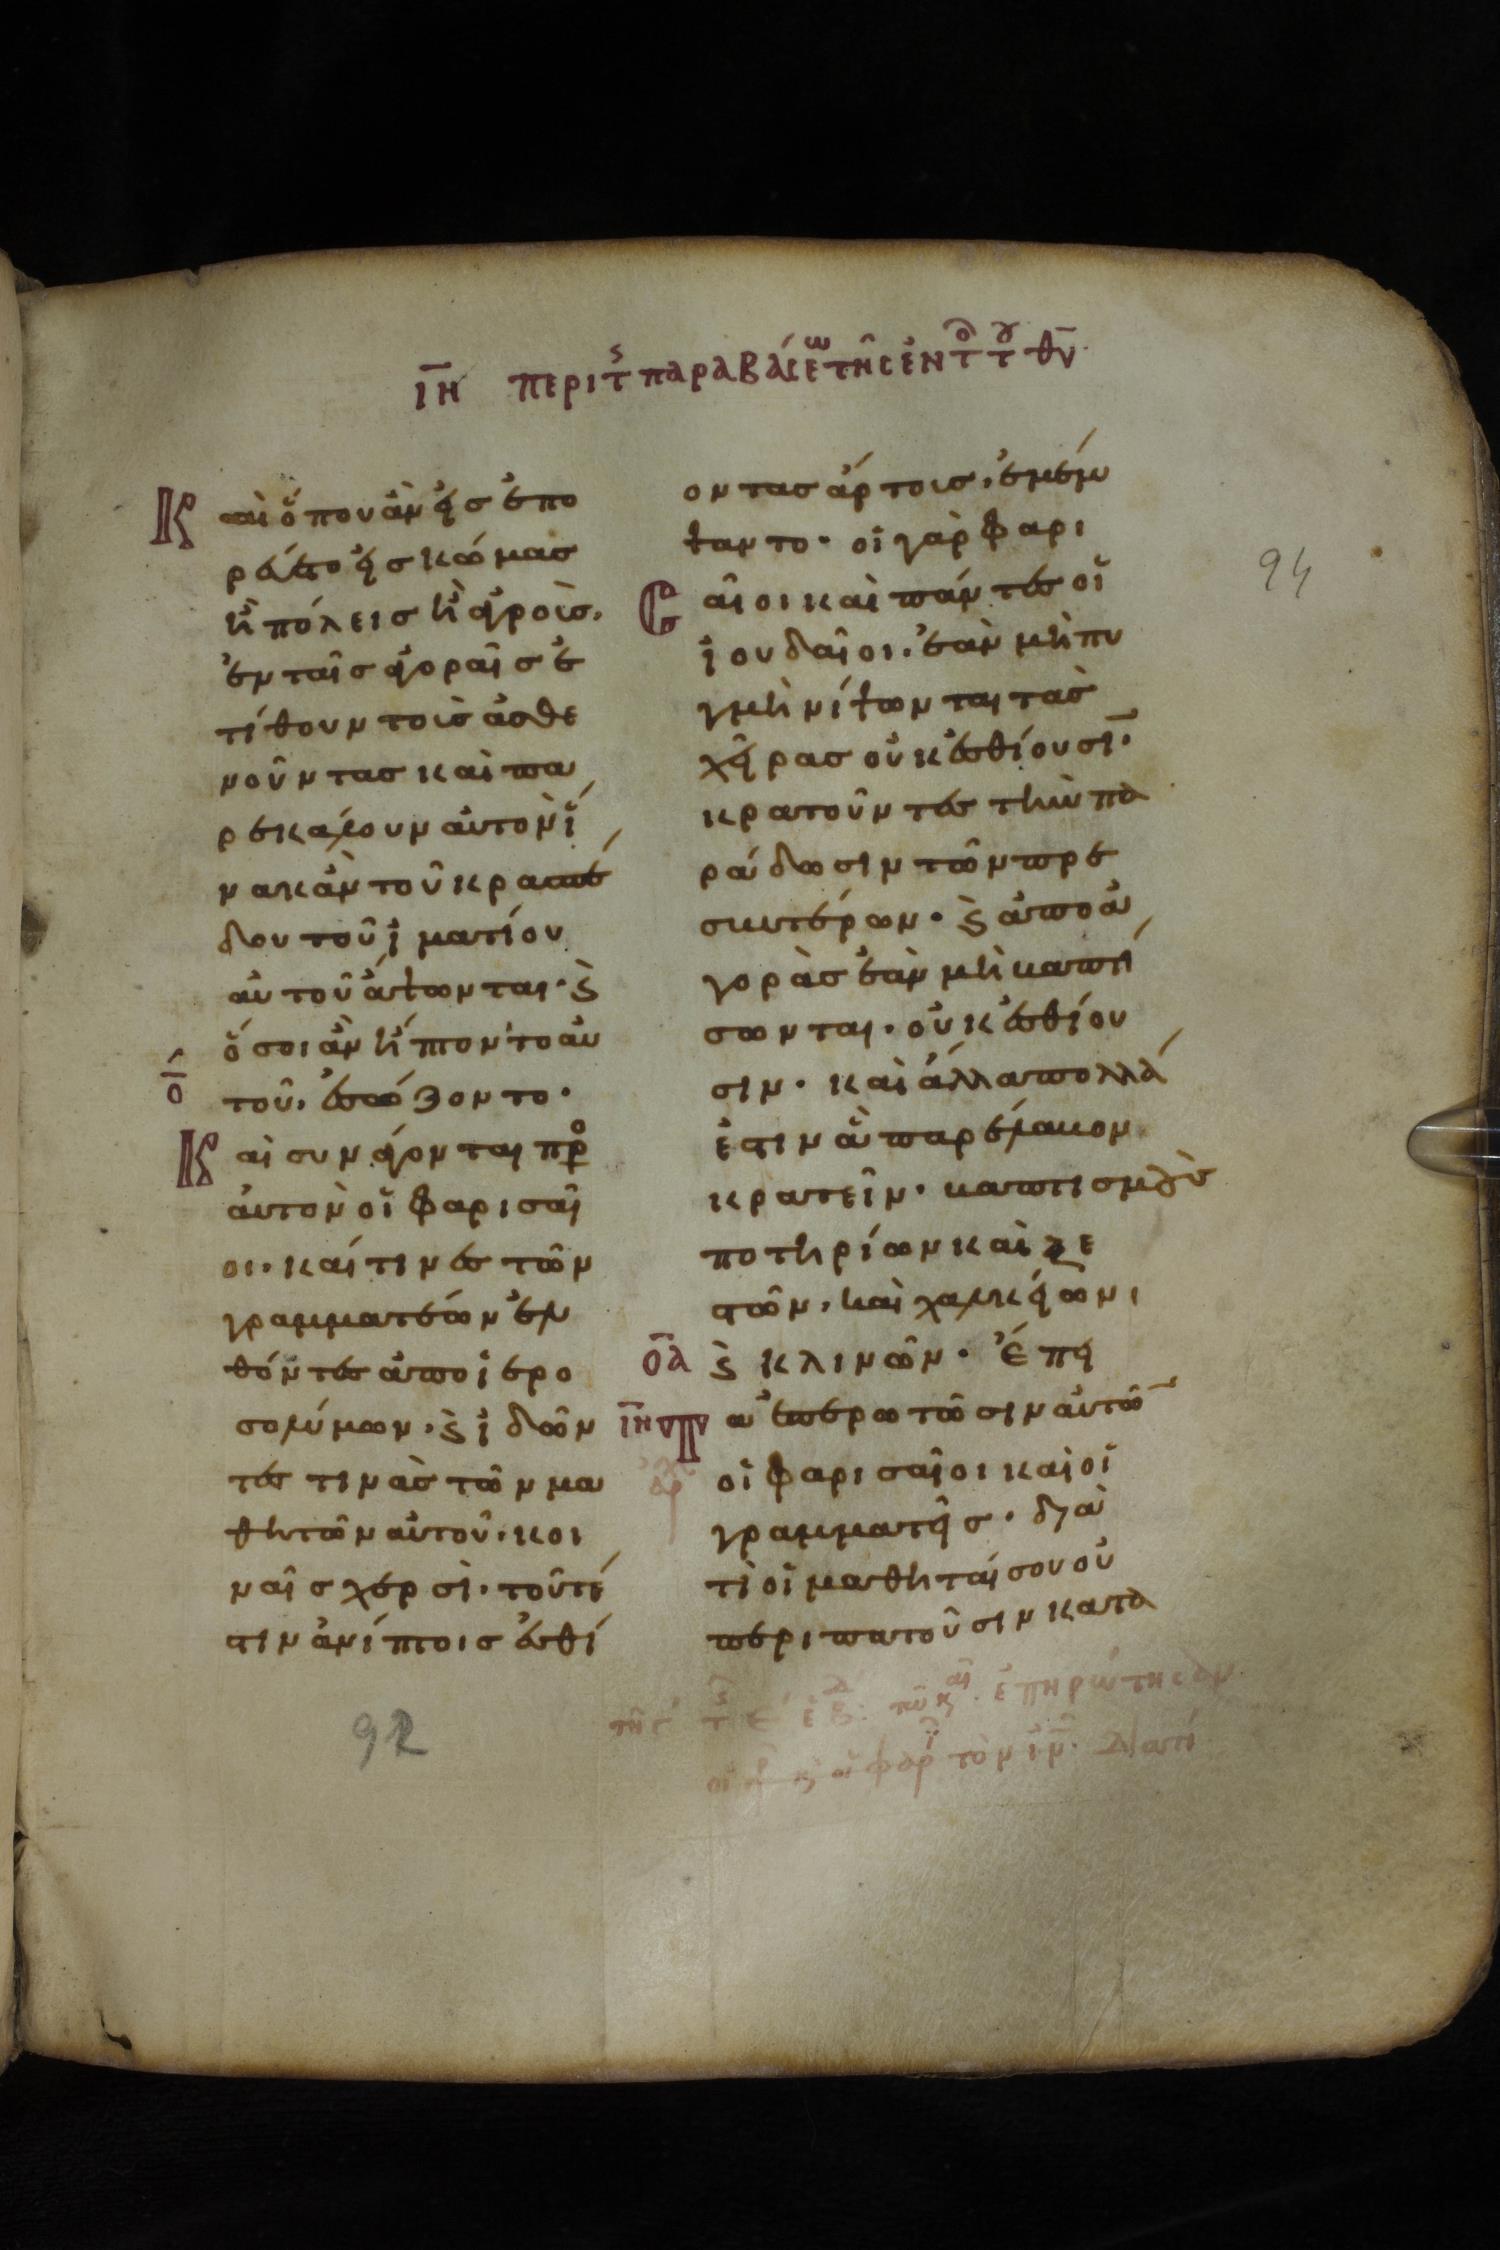 ιη περι τ παραβάσεω της εν τ τ θυ
Καὶ ὅπου ἂν εἰσεπο
ρεύετο εἰς κώμας
ἢ πόλεις ἢ ἀγροὺς,
ἐν ταῖς ἀγοραῖς ἐ
τίθουν τοὺς ἀσθε
νοῦντας καὶ πα
ρεκάλουν αὐτὸν ἵ
να κἂν τοῦ κρασπέ
δου τοῦ ἱματίου
αὐτοῦ ἅψωνται· ϗ
ὅσοι ἂν ἥπτοντο αὐ
τοῦ, ἐσώζοντο·
ο
Καὶ συνάγονται πρὸ
αὐτὸν οἱ φαρισαῖ
οι· καί τινες τῶν
γραμματέων ἐλ
θόντες ἀπὸ ἱερο
σολύμων, ϗ ἰδόν
τες τινὰς τῶν μα
θητῶν αὐτοῦ, κοι
ναῖς χερσὶ, τοῦτέ
στιν ἀνίπτοις ἐσθί
92
οντας ἄρτους, ἐμέμ
ψαντο· οἱ γὰρ φαρι
Σαῖοι καὶ πάντες οἱ
ἰουδαῖοι, ἐὰν μὴ πυ
γμῇ νίψωνται τὰς
χεῖρας οὐκ ἐσθίουσι·
κρατοῦντες τὴν πα
ράδωσιν τῶν πρε
σβυτέρων· ϗ ἀπὸ ἀ
γορὰς ἐὰν μὴ βαπτί
σωνται, οὐκ ἐσθίου
σιν· καὶ ἄλλα πολλά
ἐστιν ἃ παρέλαβον
κρατεῖν, βαπτισμοὺς
ποτηρίων καὶ ξε
στῶν, καὶ χαλκείων,
οα ϗ κλινῶν· Ἔπει
ιη Τα ἐπερωτῶσιν αὐτὸν
οἱ φαρισαῖοι καὶ οἱ
γραμματεῖς· διὰ
τὶ οἱ μαθηταί σου οὐ
περιπατοῦσιν κατὰ
ἐπηρώτησαν
τὸν ιν. Διατί
94